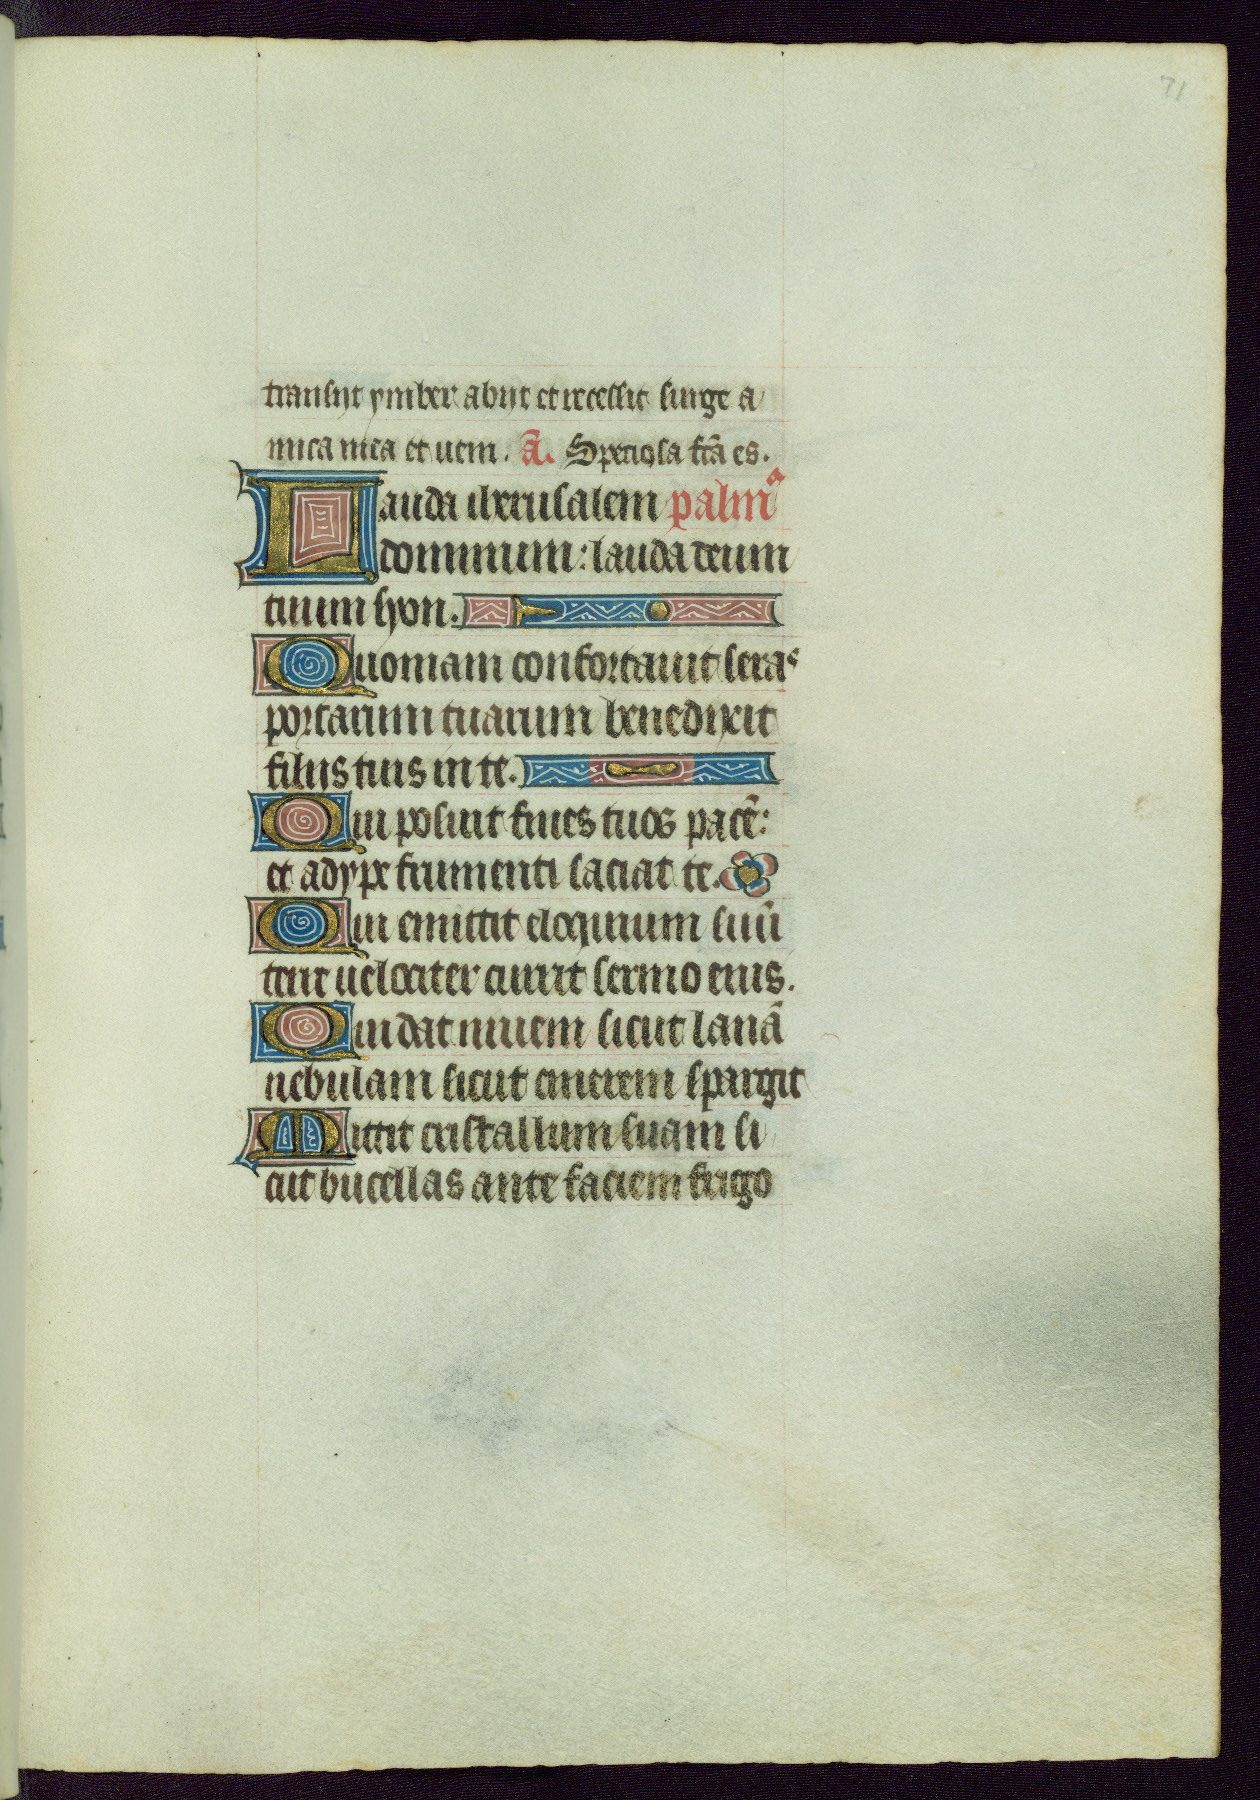 71
transijt ymber abijt et recessit surge a
mica mea et ueni. Ā. Speciosa fcā es.
Lauda iherusalem psalmꝰ
dominum: lauda deum
tuum syon.
Quoniam confortauit seras
portarum tuarum benedixit
filijs tuis in te.
Qui posuit fines tuos pacē:
et adype frumenti saciat te.
Qui emittit eloquium suū
terre uelociter currit sermo eius.
Qui dat niuem sicut lanā
nebulam sicut cinerem spargit
Mittit cristallum suam si
cut bucellas ante faciem frigo